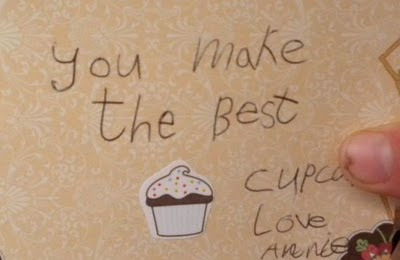 you make
the Best
cupca
Love
Annie